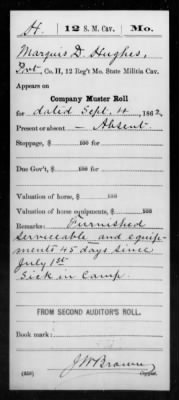 H. 12 S. M. Cav. Mo.
Marquis D. Hughes,
Pvt, Co. H, 12 Reg't Mo. State Militia Cav.
Appears on
Company Muster Roll
for dated Sept. 4, 1862.
Present or absent — Absent.
Stoppage, $ 100 for
Due Gov't, $ 100 for
Valuation of horse, $ 100
Valuation of horse equipments, $ 100
Remarks: Furnished
serviceable and equip-
ments 45 days since
July 1st
Sick in Camp.
FROM SECOND AUDITOR'S ROLL.
Book mark:
J W Brown
(359) Copyist.